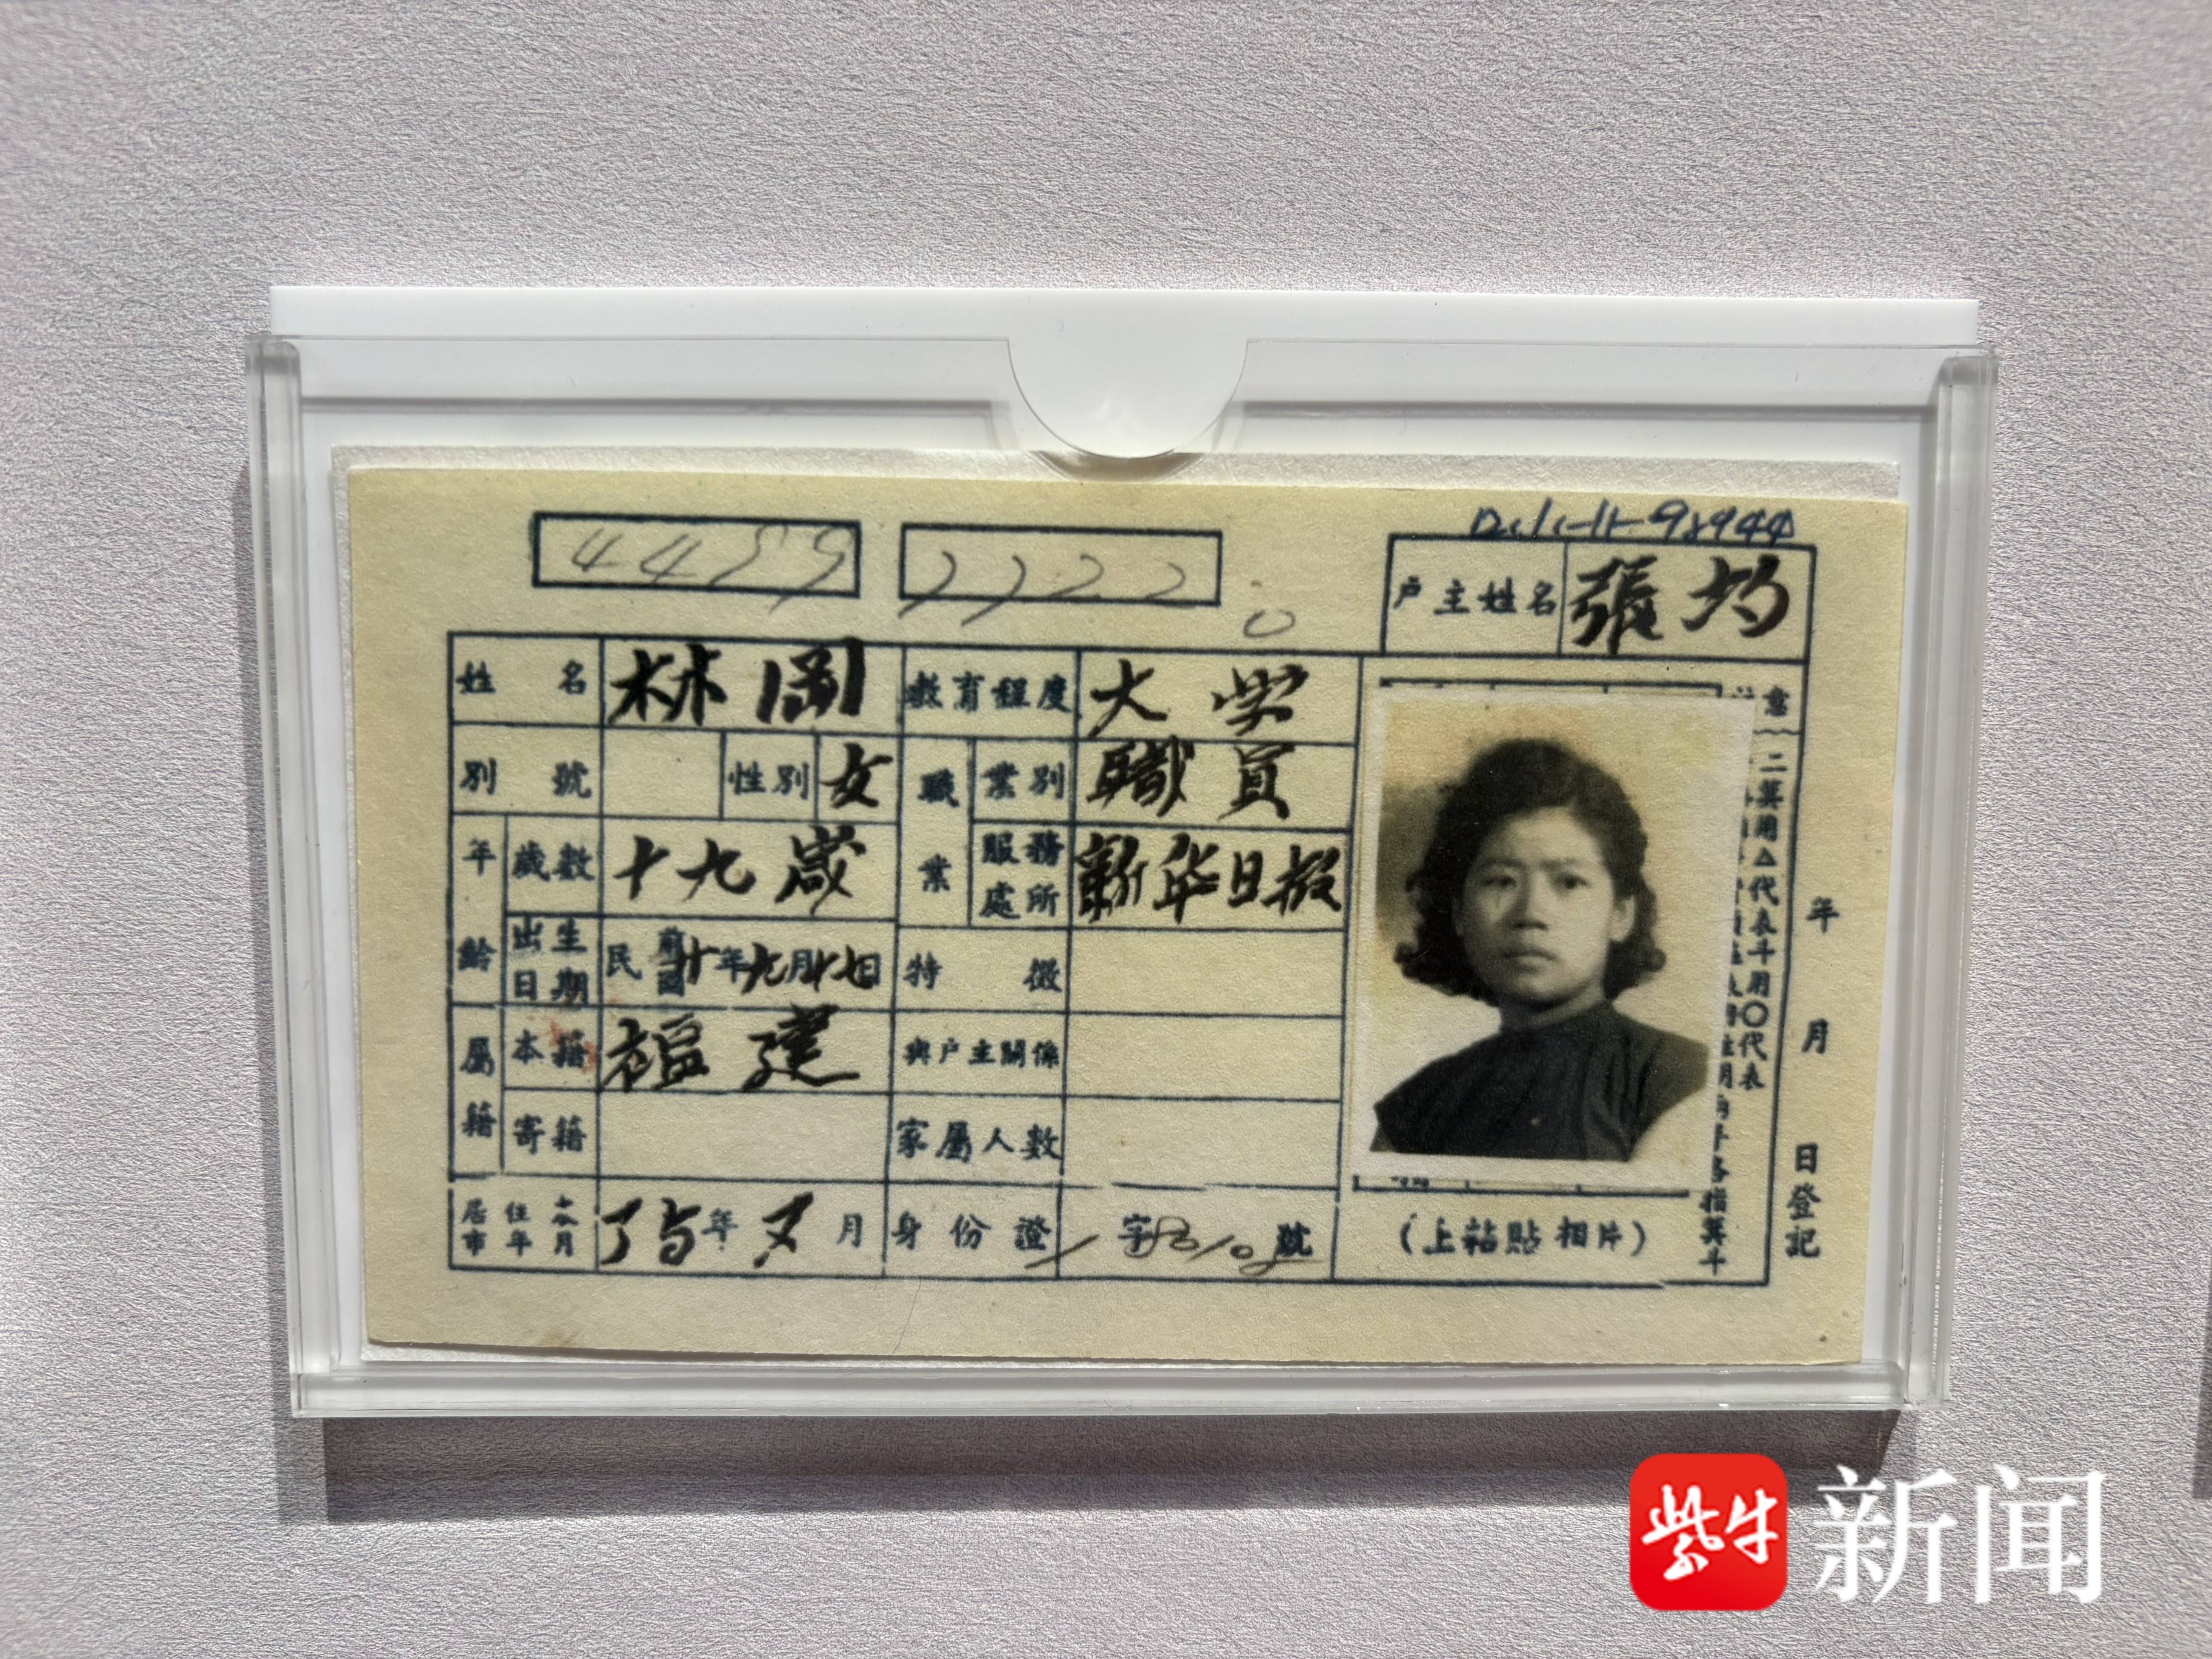 4499
2722
户主姓名 張灼
姓名 林岡 教育程度 大学
別號 性別 女 職業 業別 職員
年齡 歲數 十九歲 服務處所 新华日报
出生日期 民前國 年九月十七日 特徵
屬籍 本籍 福建 與户主關係
寄籍 家屬人數
居住本市年月 年 月 身份證 字 號
(上粘貼相片)
意
二箕用△代表斗用〇代表
年 月 日登記
紫牛新闻